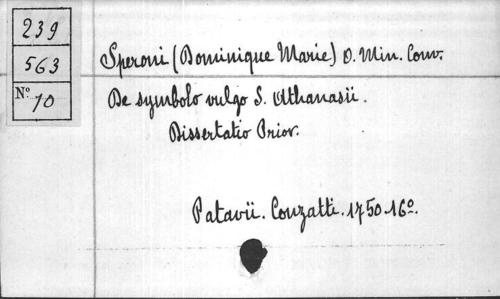 239
563
No. 10
Speroni (Dominique Marie) O. Min. Conv.
De symbolo vulgo S. Athanasii.
Dissertatio Prior.
Patavii. Conzatti. 1750. 16o.